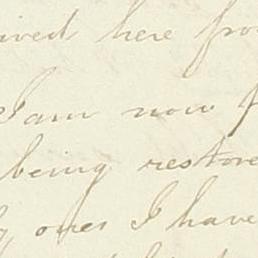 ived here fro
I am now f
being restore
y ones I have